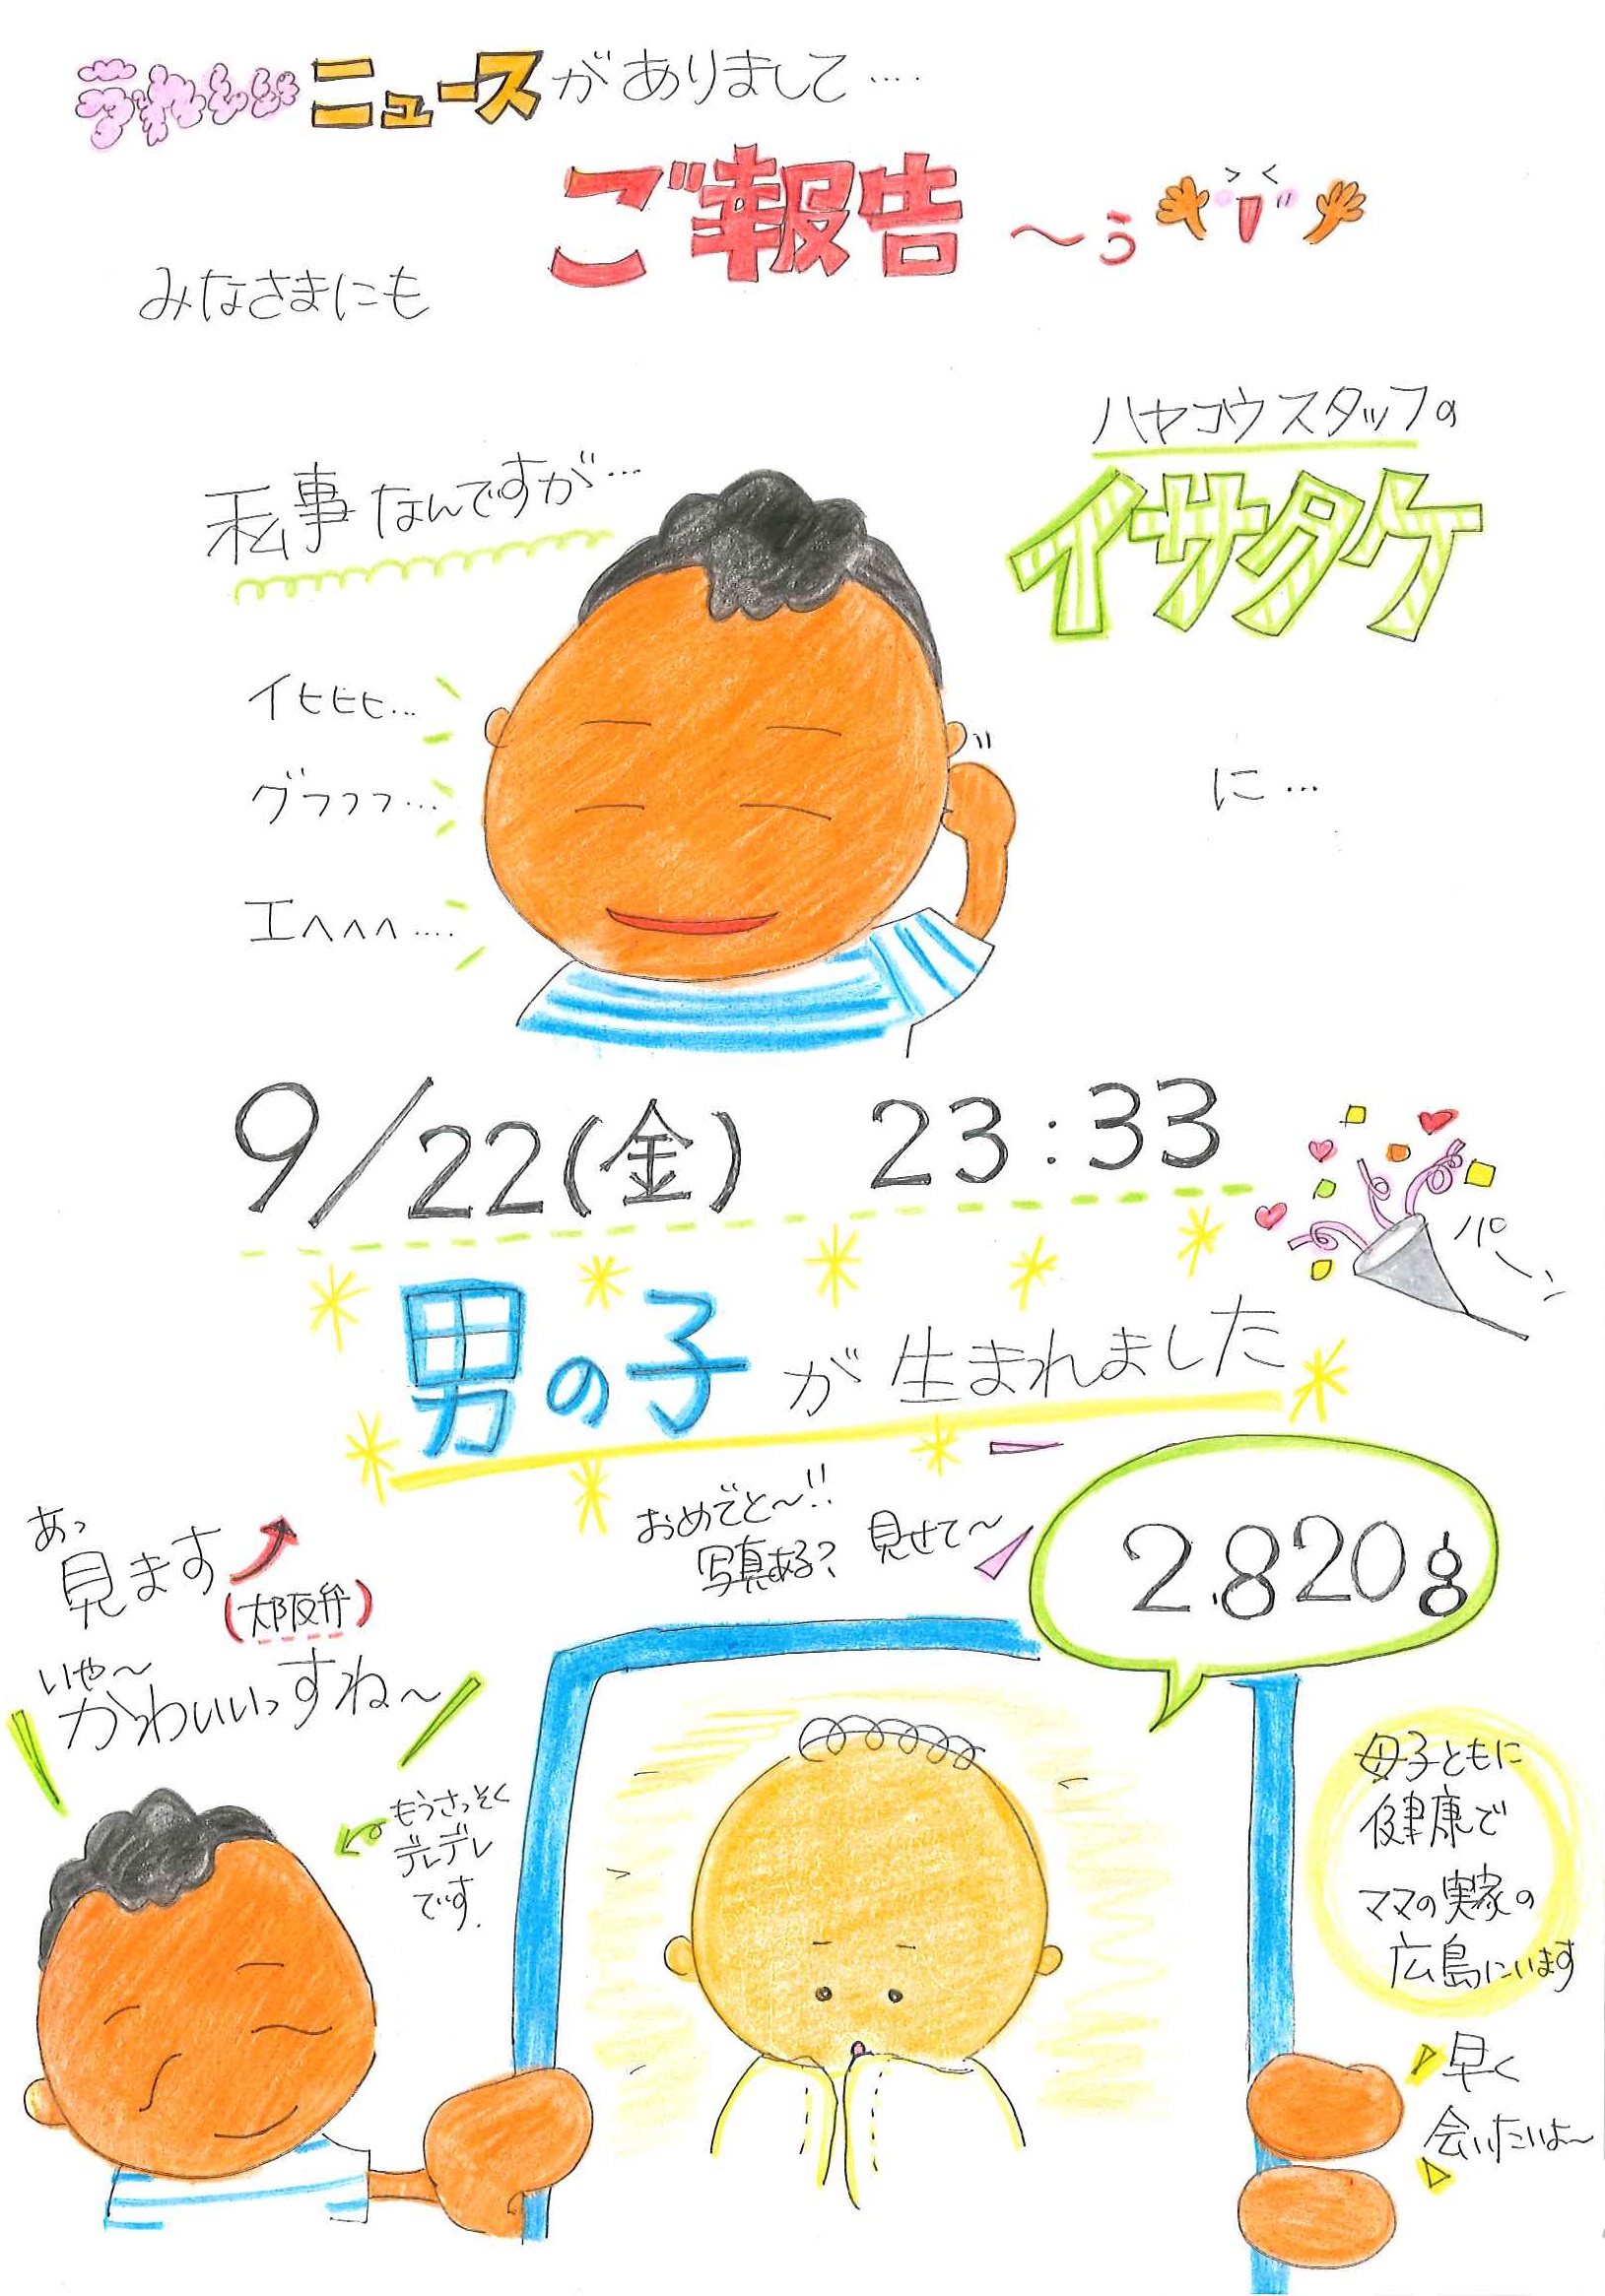 うれしいニュースがありまして....
みなさまにも
ご報告〜う
私事なんですが…
ハヤコウスタッフの
イサタケ
イヒヒヒ…
グフフフ…
エヘヘヘ....
に…
9/22(金) 23:33
パーン
男の子が生まれました
おめでと〜!!
写真ある? 見せて〜
2.820g
あっ
見ます
(大阪弁)
いや〜
かわいいっすね〜
もうさっそく
デレデレ
です.
母子ともに
健康で
ママの実家の
広島にいます
早く
会いたいよ〜